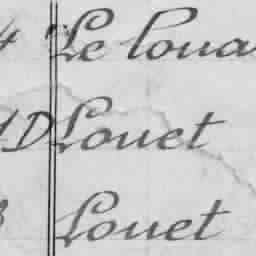 4 " Le loua
D Louet
3 Louet